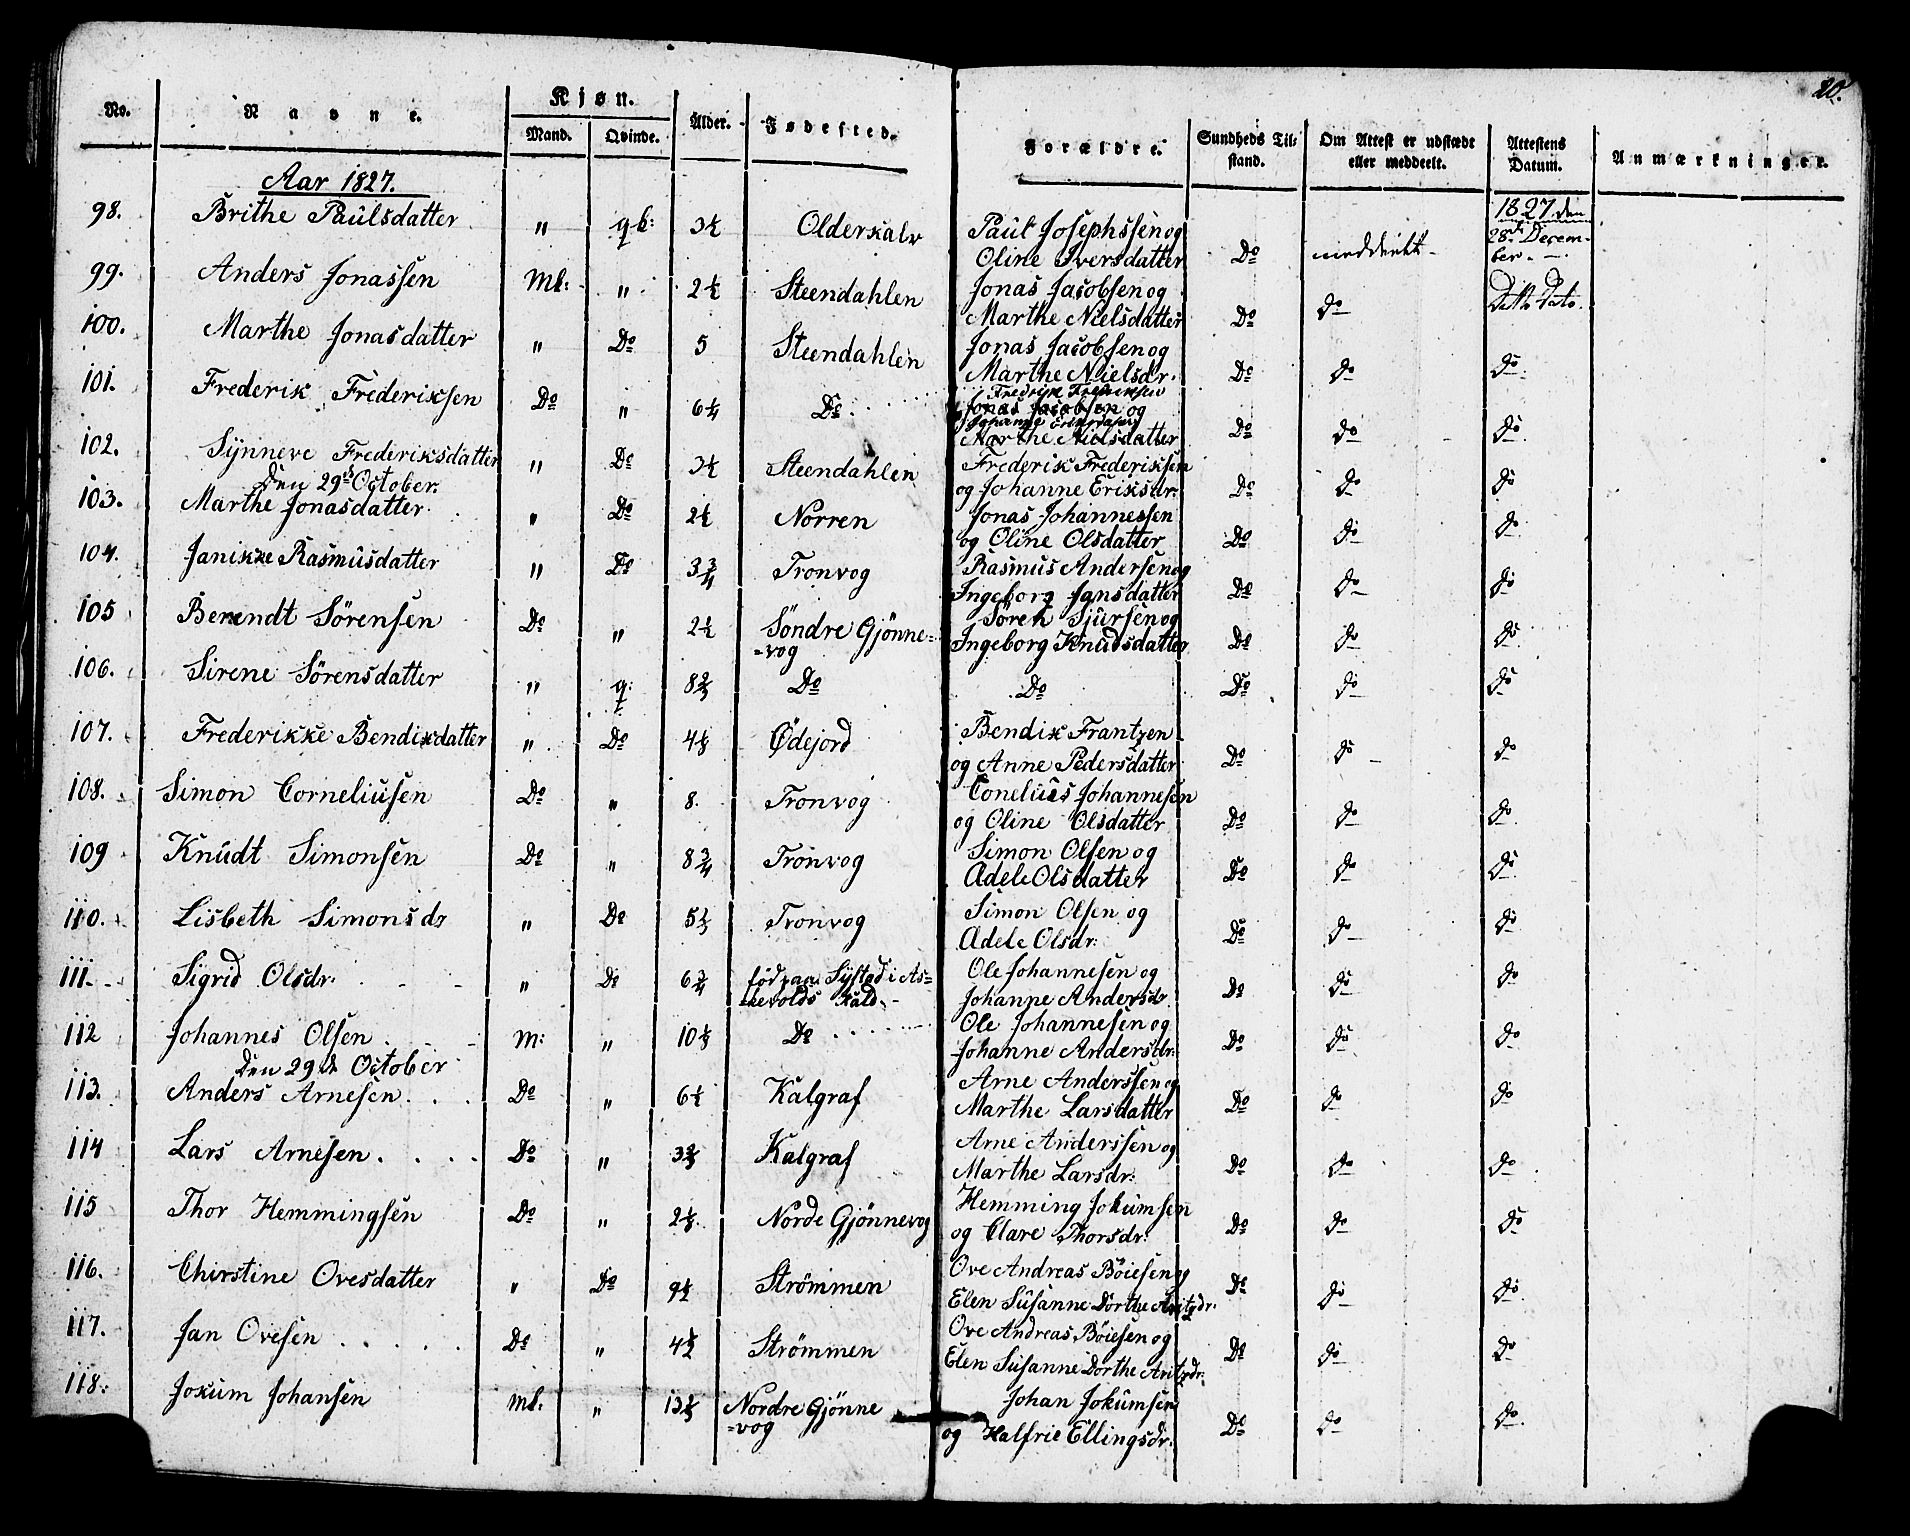 20.
No. Navne. Kjøn. Alder. Fødested. Forældre. Sundheds Til- Om Attest er udstædt Attestens Anmærkninger.
Mand. Qvinde. stand. eller meddeelt. Datum.
Aar 1827.
98. Brithe Paulsdatter " qk: 3½ Olderkalv Paul Josephssen og 1827 den
Oline Iversdatter Do meddeelt 28de Decem-
ber.
99. Anders Jonassen Mk: " 2½ Steendahlen Jonas Jacobsen og
Marthe Nielsdatter Do do Ditto Dato.
100. Marthe Jonasdatter " Do 5 Steendahlen Jonas Jacobsen og
Marthe Nielsdr. Do do do
101. Frederik Frederiksen Do " 6¼ Do Fredrik Fredriksen
Jonas Jacobsen og
Johanne Eriksdatter
Marthe Nielsdatter Do do do
102. Synneve Frederiksdatter " Do 3½ Steendahlen Frederik Frederiksen
og Johanne Eriksdr: Do do do
Den 29de October.
103. Marthe Jonasdatter " Do 2½ Norren Jonas Johannessen
og Oline Olsdatter Do do do
104. Janikke Rasmusdatter " Do 3¾ Tronvog Rasmus Andersen og
Ingeborg Jansdatter Do do do
105 Berendt Sörensen Do " 2½ Söndre Gjönne- Søren Sjursen og
=vog Ingeborg Knudsdatter Do do do
106. Sirene Sørensdatter " q: 8⅔ Do Do Do do do
107. Frederikke Bendixdatter " Do Ødejord Bendix Frantzen
og Anne Pedersdatter Do do do
108. Simon Corneliusen Do " 8. Tronvog Conelius Johannesen
og Oline Olsdatter Do do do
109 Knudt Simonsen Do " 8¾ Tronvog Simon Olsen og
Adele Olsdatter Do do do
110. Lisbeth Simonsdr " Do Tronvog Simon Olsen og
Adele Olsdr: Do do do
111. Sigrid Olsdr: " Do 6¾ født paa Systad i As-
=kevolds Kald Ole Johannesen og
Johanne Andersdr Do do do
112 Johannes Olsen M: " Do Ole Johannesen og
Johanne Andersdr: Do do do
Den 29de October
113. Anders Arnesen Do " 6½ Kalgraf Arne Anderssen og
Marthe Larsdatter Do do do
114 Lars Arnesen Do " Kalgraf Arne Anderssen og
Marthe Larsdr: Do do do
115 Thor Hemmingsen Do " Norde Gjönnevog Hemming Jokumsen
og Clare Thorsdr: Do do do
116. Chirstine Ovesdatter " Do 9½ Strömmen Ove Andreas Böiesen og
Elen Susanne Dorthe Do do do
117. Jan Ovesen Do " 4½ Strömmen Ove Andreas Böiesen og
Elen Susanne Dorthe Do do do
118: Jokum Johansen Mk. " Nordre Gjönne Johan Jokumsen
=vog og Halfrie Ellingsdr. Do do do